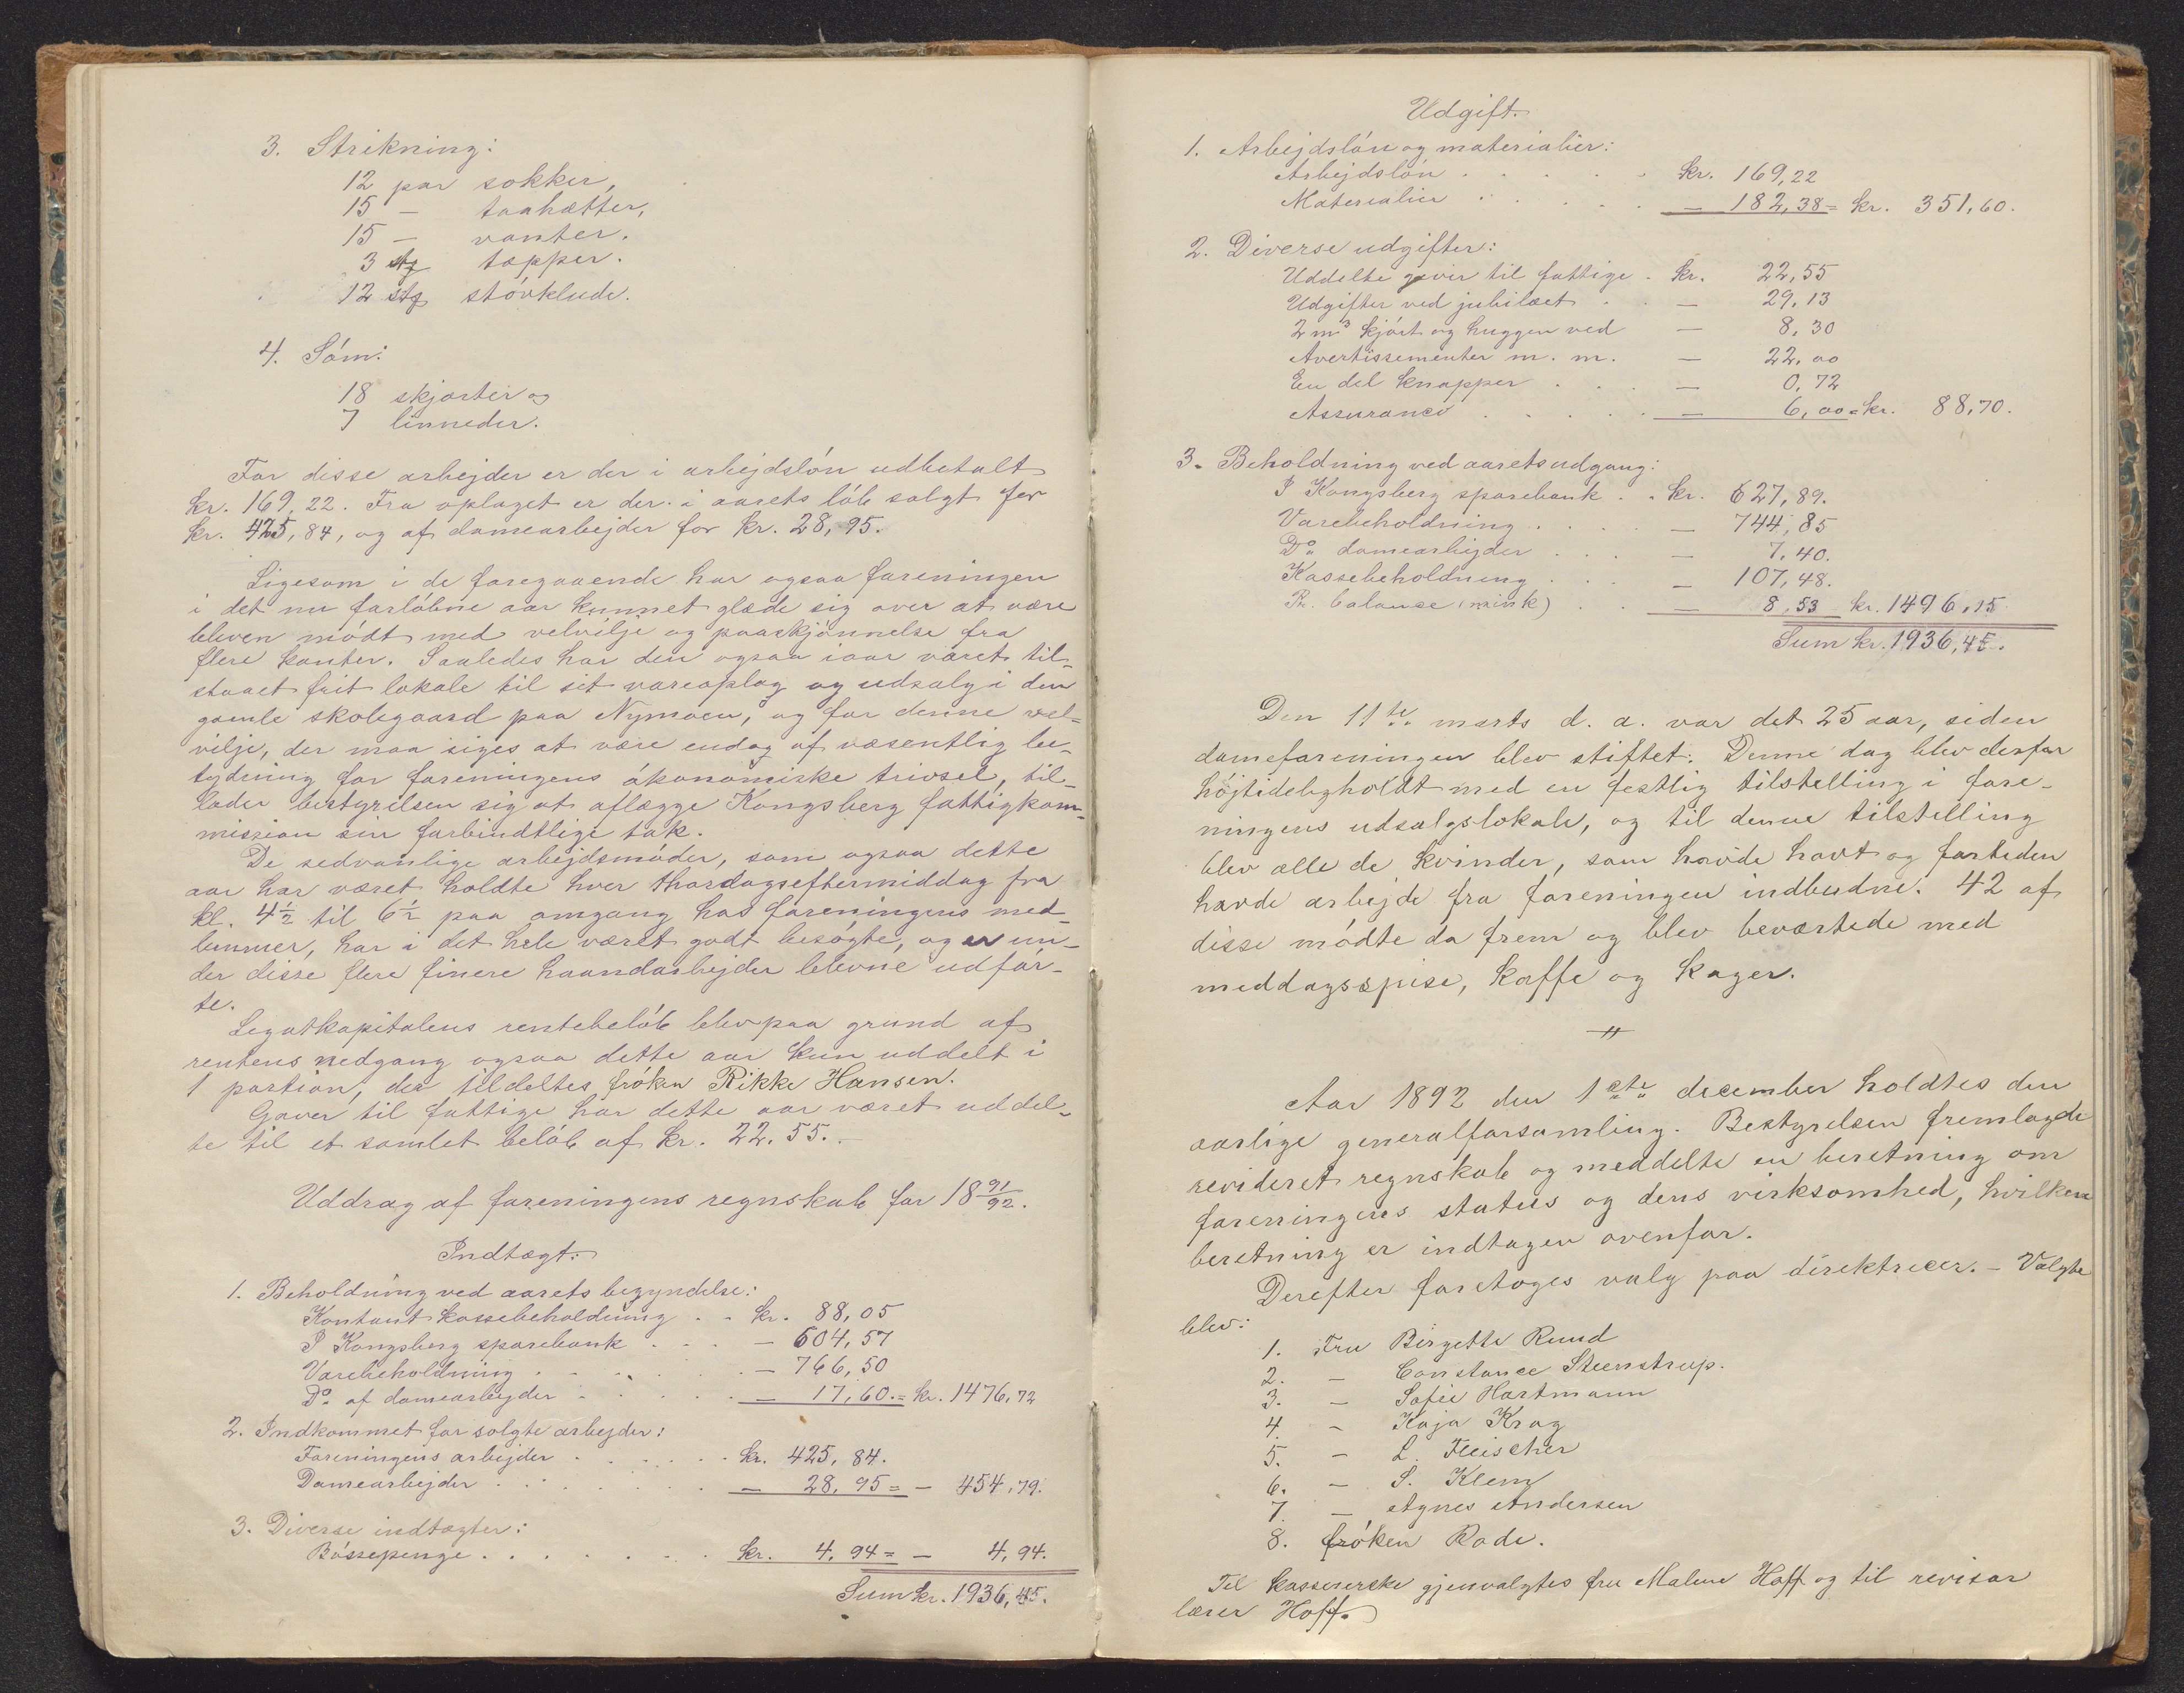 3. Strikning:
12 par sokker,
15 — taahætter,
15 — vanter.
3 stk tæpper.
12 stk stóvklude.
4. Sóm:
18 skjorter og
7 linneder.
For disse arbejder er der i arbejdslón udbetalt
kr. 169,22. Fra oplaget er der i aarets lób solgt for
kr. 425,84, og af damearbejder for kr. 28,95.
Ligesom i de foregaaende har ogsaa foreningen
i det nu forlóbne aar kunnet glæde sig over at være
bleven módt med velvilje og paaskjónnelse fra
flere kanter. Saaledes har den ogsaa iaar været til-
staaet frit lokale til sit vareoplag og udsalg i den
gamle skolegaard paa Nymoen, og for denne vel-
vilje, der maa siges at være endog af væsentlig be-
tydning for foreningens ókonomiske trivsel, til-
lader bestyrelsen sig at aflægge Kongsberg fattigkom-
mission sin forbindtlige tak.
De sedvanlige arbejdsmóder, som ogsaa dette
aar har været holdte hver thorsdagseftermiddag fra
kl. 4½ til 6½ paa omgang hos foreningens med-
lemmer, har i det hele været godt besógte, og er un-
der disse flere finere haandarbejder blevne udfór-
te.
Legatkapitalens rentebelób blev paa grund af
rentens nedgang ogsaa dette aar kun uddelt i
1 portion, der tildeltes fróken Rikke Hansen.
Gaver til fattige har dette aar været uddel-
te til et samlet belób af kr. 22,55.
Uddrag af foreningens regnskab for 18 91/92.
Indtægt:
1. Beholdning ved aarets begyndelse:
Kontant kassebeholdning . . kr. 88,05
I Kongsberg sparebank . . . — 604,57
Varebeholdning . . . . — 766,50
Do. af damearbejder . . . . — 17,60 = kr. 1476,72
2. Indkommet for solgte arbejder:
Foreningens arbejder . . . . . kr. 425,84.
Damearbejder . . . . . — 28,95 = — 454,79.
3. Diverse indtægter:
Bóssepenge . . . . . . . kr. 4,94 = — 4,94.
Sum kr. 1936,45.
Udgift.
1. Arbejdslón og materialier:
Arbejdslón . . . . . kr. 169,22
Materialier . . . . . — 182,38 = kr. 351,60.
2. Diverse udgifter:
Uddelte gaver til fattige . kr. 22,55
Udgifter ved jubilæet . . — 29,13
2 m³ kjórt og huggen ved — 8,30
Avertissementer m. m. — 22,00
En del knapper . . . — 0,72
Assurance . . . . . — 6,00 = kr. 88,70.
3. Beholdning ved aarets udgang:
I Kongsberg sparebank . . kr. 627,89.
Varebeholdning . . . . — 744,85
Do. damearbejder . . . — 7,40.
Kassebeholdning . . . — 107,48.
Pr. balance (mink) . . — 8,53 kr. 1496,15
Sum kr. 1936,45.
Den 11te marts d. a. var det 25 aar, siden
dameforeningen blev stiftet. Denne dag blev derfor
hójtideligholdt med en festlig tilstelling i fore-
ningens udsalgslokale, og til denne tilstelling
blev alle de kvinder, som havde havt og fortiden
havde arbejde fra foreningen indbudne. 42 af
disse módte da frem og blev beværtede med
meddagsspise, kaffe og kager.
Aar 1892 den 1ste december holdtes den
aarlige generalforsamling. Bestyrelsen fremlagde
revideret regnskab og meddelte en beretning om
foreningens status og dens virksomhed, hvilken
beretning er indtagen ovenfor.
Derefter foretoges valg paa direktricer. — Valgte
blev:
1. Fru Birgette Ruud
2. — Constance Steenstrup.
3. — Sofie Hartmann
4. — Kaja Krag
5. — L. Fleischer
6. — S. Klem
7. — Agnes Andersen
8. fróken Rode.
Til kassererske gjenvalgtes fru Malene Hoff og til revisor
lærer Hoff.